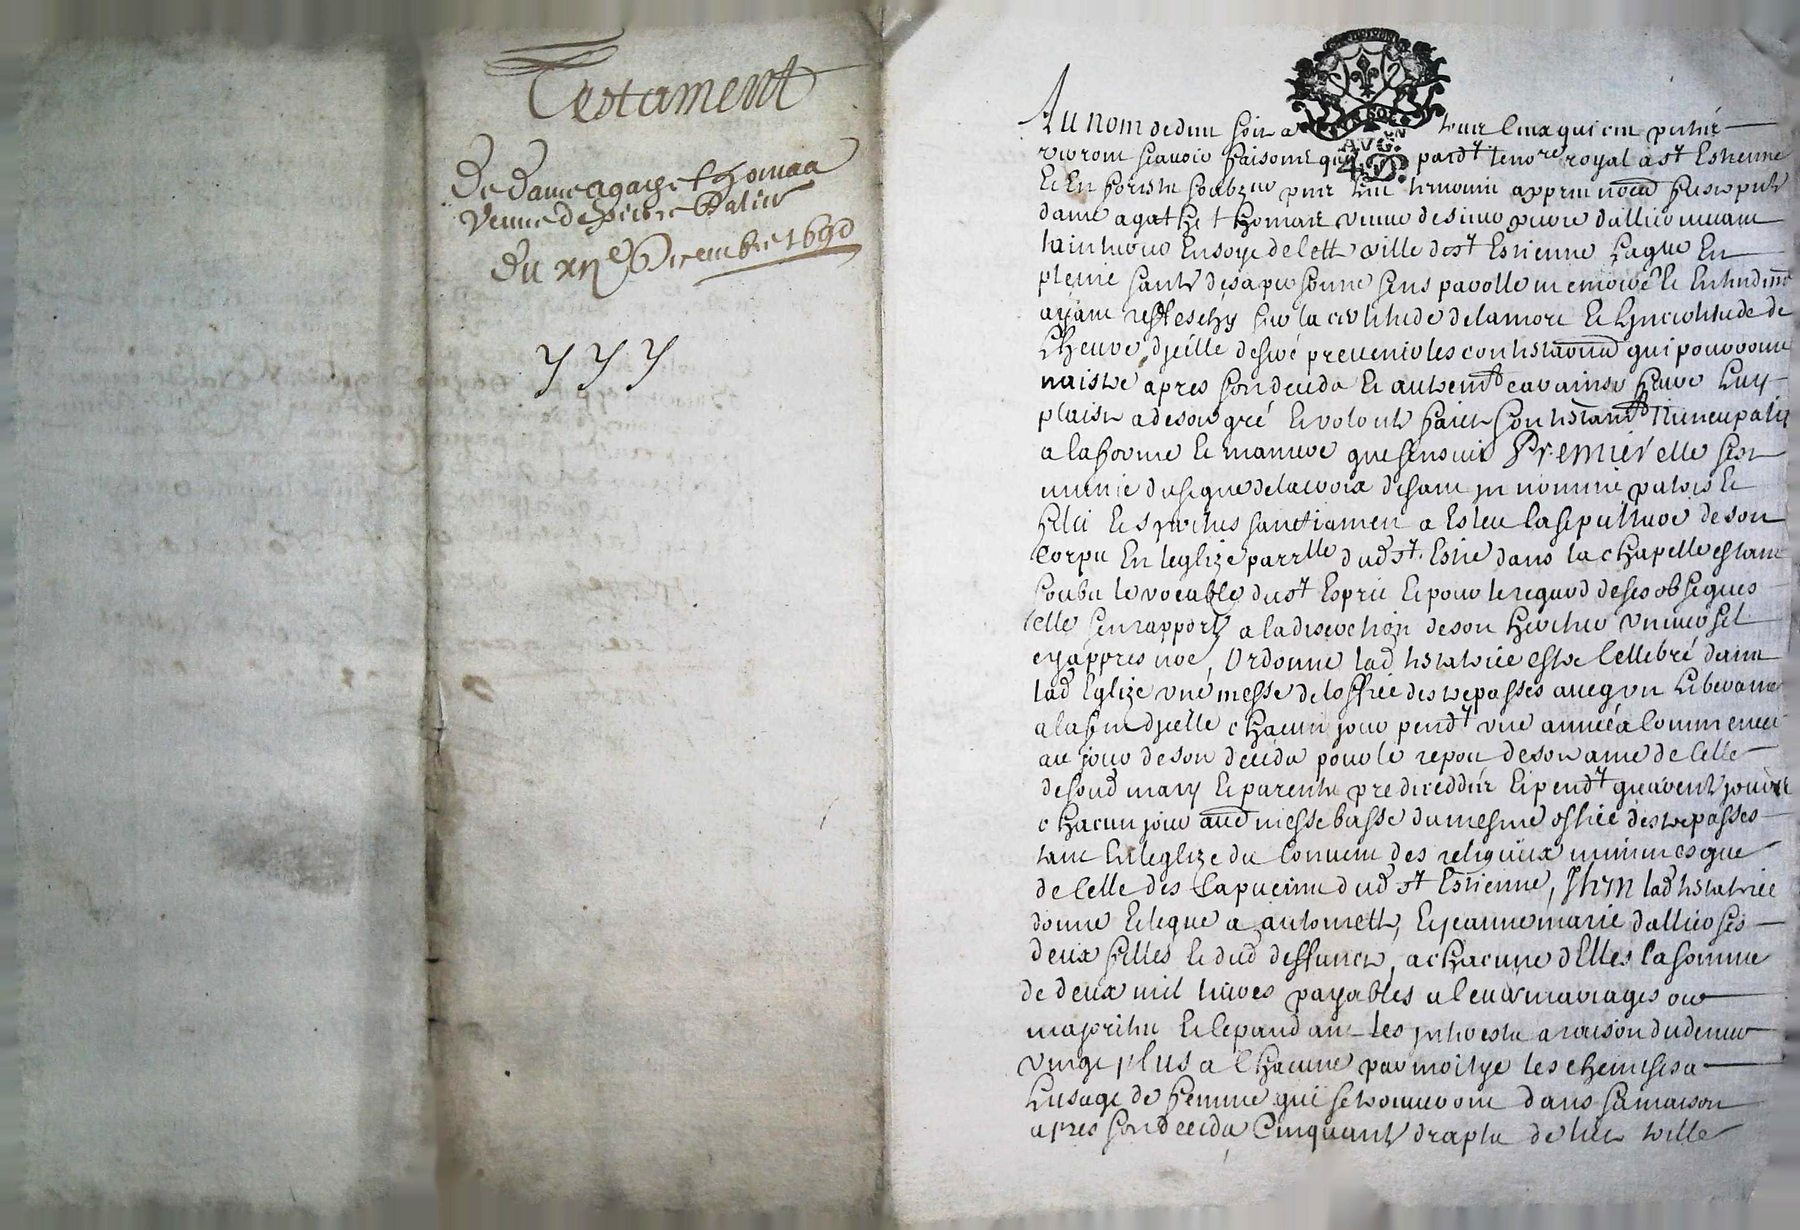 Testament
De dame agathe thomaa
Veuve de pierre Dalier
du xii^e Decembre 1690
y y y
AVG.
4 D.
Au nom de dieu soit a tour ceux qui ces pntes
verront scavoir faisons que pard^t le no^re royal a s^t Estienne
Et En forests soubzne pnt les temoins appres nomes fust pnte
dame agathe thomaz veuve de sieur pierre dallier vivant
en soye de lett ville de s^t Estienne Laque En
pleine sante de sa personne sens parolle memoire Et Entendem^t
ayant refleschy sur la certitude de la mort Et Lincertitude de
Lheure djcelle desire prevenir les contestaons qui pouroient
naistre apres son decedz Et autrem^t car ainsy faire Luy
plaist a de son gré Et volonte faict son testam^t Nuncupatif
a la forme Et maniere que sensuit Premier elle sest
munie du signe de la croix disant jn nomine patris Et
filii Et spiritus sancti amen a Esleu la sepulture de son
Corps En leglize parr^lle dud s^t Estie dans la chapelle estant
soubz le vocable du s^t Esprit Et pour le regard de ses obseques
elle sen rapporte a la discretion de son heritier universel
cy appres no^é, Ordonne lad testatrice estre Cellebré dans
lad Eglize une messe de loffice des trepassés avecq un Libera me
a la fin djcelle chacun jour pend^t une année a Commencer
au jour de son decedz pour le repos de son ame de Celle
de soud mary Et parents predeceddés Et pend^t quarente jours
chacun jour aud messe basse du mesme office des trepasses
tant En leglize du Convent des religieux minimes que
de Celle des Capucins dud s^t Estienne, Jtem lad testatrice
donne Et legue a anthoinette, Et jeanne marie dallier ses
deux filles Et dud deffunct, a chacune dElles la somme
de deux mil livres payables a leurs mariages ou
majorites Et lepandant les jnterests a raison du denier
vingt plus a Chacune par moitye les chemises a
Lusage de femme qui se trouveront dans sa maison
apres son decedz Cinquante draps de lict toille